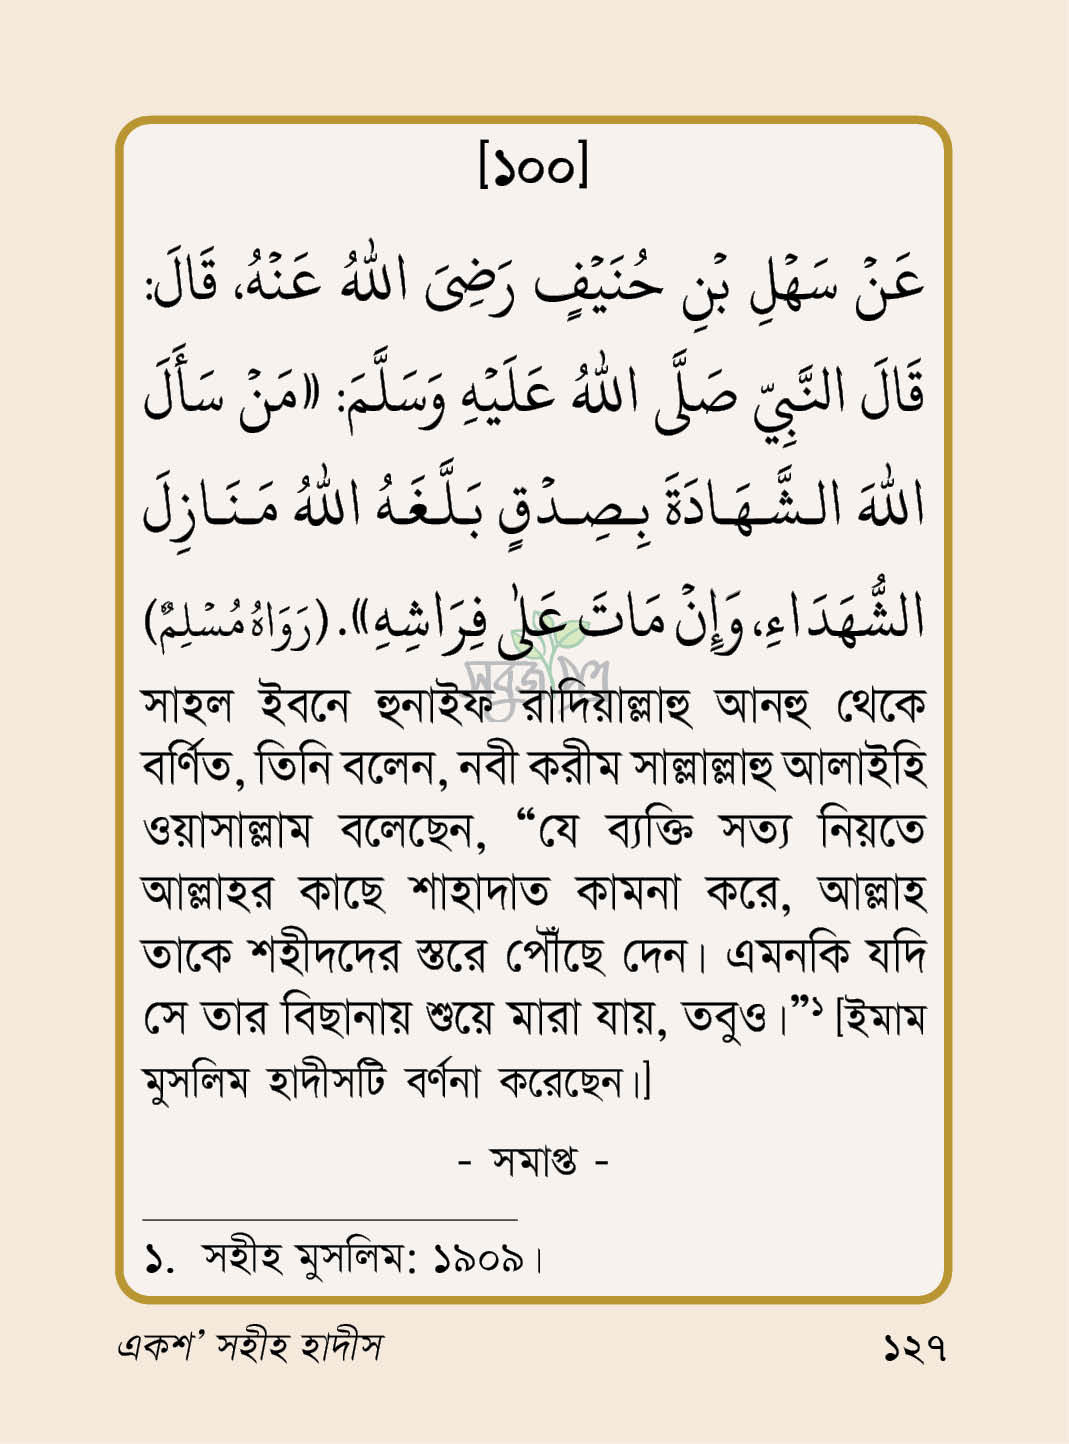 [১০০]
عَنْ سَهْلِ بْنِ حُنَيْفٍ رَضِىَ اللهُ عَنْهُ، قَالَ:
قَالَ النَّبِيّ صَلَّى اللهُ عَلَيْهِ وَسَلَّمَ: «مَنْ سَأَلَ
اللهَ الشَّهَادَةَ بِصِدْقٍ بَلَّغَهُ اللهُ مَنَازِلَ
الشُّهَدَاءِ، وَإِنْ مَاتَ عَلٰى فِرَاشِهِ». (رَوَاهُ مُسْلِمٌ)
সবুজ পত্র
সাহল ইবনে হুনাইফ রাদিয়াল্লাহু আনহু থেকে
বর্ণিত, তিনি বলেন, নবী করীম সাল্লাল্লাহু আলাইহি
ওয়াসাল্লাম বলেছেন, “যে ব্যক্তি সত্য নিয়তে
আল্লাহর কাছে শাহাদাত কামনা করে, আল্লাহ
তাকে শহীদদের স্তরে পৌঁছে দেন। এমনকি যদি
সে তার বিছানায় শুয়ে মারা যায়, তবুও।”১ [ইমাম
মুসলিম হাদীসটি বর্ণনা করেছেন।]
- সমাপ্ত -
১. সহীহ মুসলিম: ১৯০৯।
একশ’ সহীহ হাদীস ১২৭